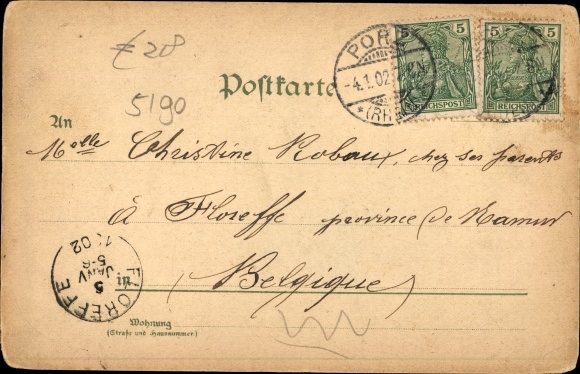 € 28
5190
Postkarte
PORZ
-4.1.02
*(RH
5 5
5 5
REICHSPOST
REICHSPOST
An
Melle Christine Robaux, chez ses parents
à Floreffe province (de Namur
(Belgique)
in
FLOREFFE
5
JANV
5-6
1902
Wohnung
(Straße und Hausnummer.)